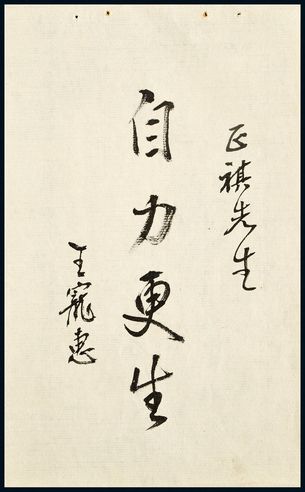 正祺先生
自力更生
王寵惠